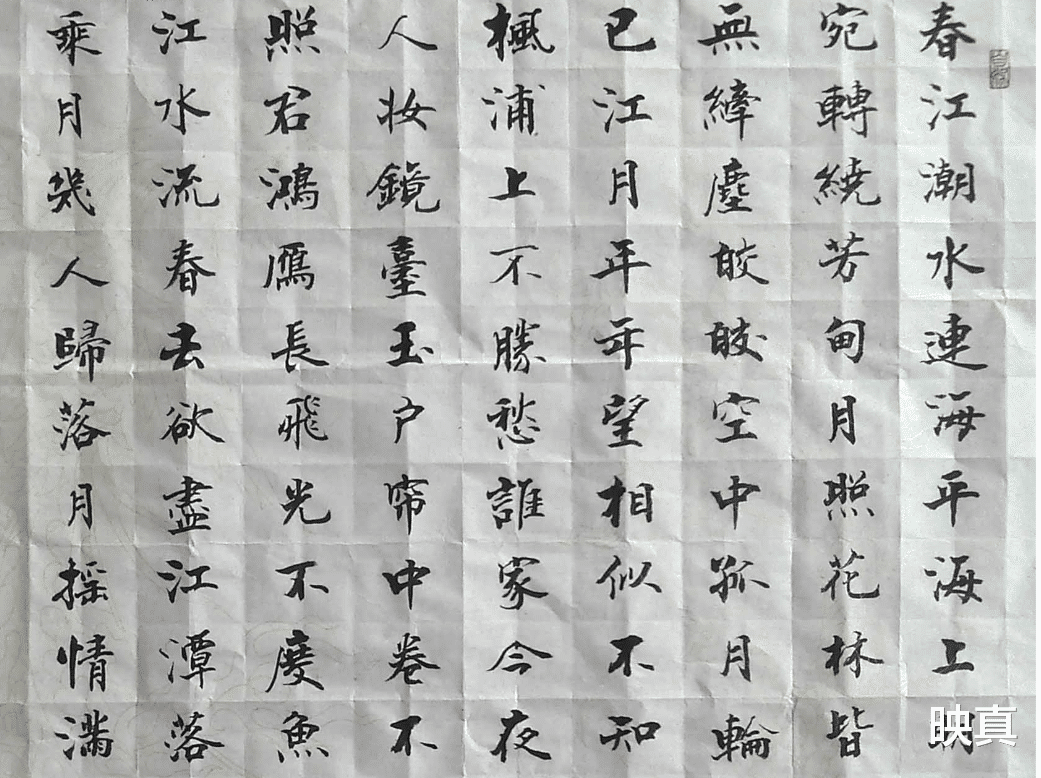 春江潮水連海平海上明
宛轉繞芳甸月照花林皆
無纖塵皎皎空中孤月輪
已江月年年望相似不知
楓浦上不勝愁誰家今夜
人妝鏡臺玉户帘中卷不
照君鴻雁長飛光不度魚
江水流春去欲盡江潭落
乘月幾人歸落月摇情滿
映真